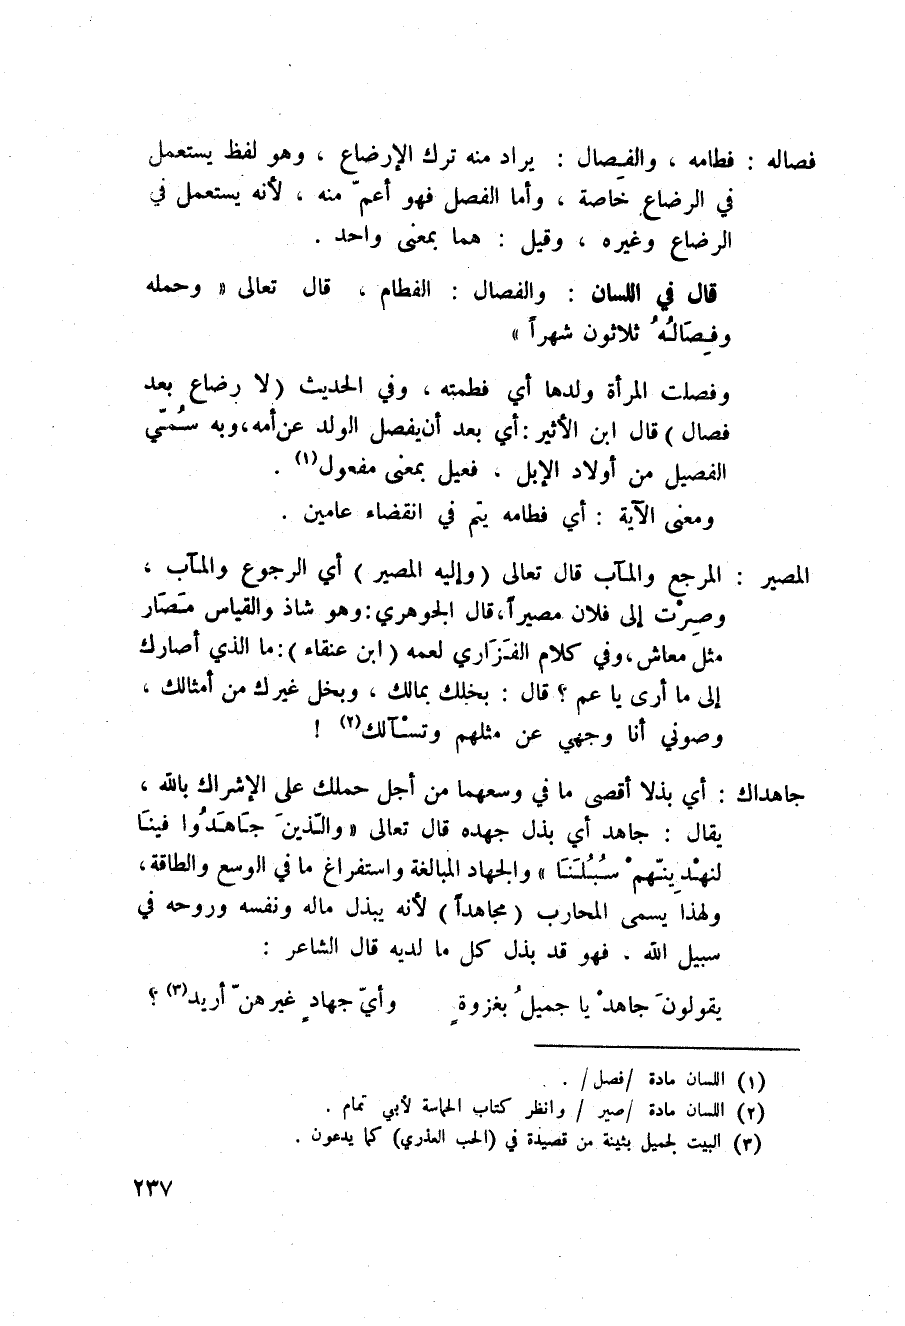 فصاله : فطامه ، والفِصال : يراد منه ترك الإرضاع ، وهو لفظ يستعمل
في الرضاع خاصة ، وأما الفصل فهو أعمّ منه ، لأنه يستعمل في
الرضاع وغيره ، وقيل : هما بمعنى واحد .
قال في اللسان : والفصال : الفطام ، قال تعالى « وحمله
وفِصَالُهُ ثلاثون شهراً »
وفصلت المرأة ولدها أي فطمته ، وفي الحديث (لا رضاع بعد
فصال ) قال ابن الأثير : أي بعد أن يفصل الولد عن أمه ، وبه سُمّي
الفصيل من أولاد الإبل . فعيل بمعنى مفعول(١) .
ومعنى الآية : أي فطامه يتم في انقضاء عامين .
المصير : المرجع والمآب قال تعالى (وإليه المصير ) أي الرجوع والمآب ،
وصِرْت إلى فلان مصيراً ، قال الجوهري : وهو شاذ والقياس مَصَار
مثل معاش ، وفي كلام الفَزَاري لعمه (ابن عنقاء ) : ما الذي أصارك
إلى ما أرى يا عم ؟ قال : بخلك بمالك ، وبخل غيرك من أمثالك ،
وصوني أنا وجهي عن مثلهم وتسْآلك(٢) !
جاهداك : أي بذلا أقصى ما في وسعهما من أجل حملك على الإشراك بالله ،
يقال : جاهد أي بذل جهده قال تعالى « والّذينَ جَاهَدُوا فينَا
لنهْدِينّهمْ سُبُلَنَا » والجهاد المبالغة واستفراغ ما في الوسع والطاقة ،
ولهذا يسمى المحارب (مجاهداً ) لأنه يبذل ماله ونفسه وروحه في
سبيل الله . فهو قد بذل كل ما لديه قال الشاعر :
يقولونَ جاهدْ يا جميلُ بغزوةٍ وأيّ جهادٍ غيرهنّ أريد(٣) ؟
(١) اللسان مادة /فصل/ .
(٢) اللسان مادة /صير / وانظر كتاب الحماسة لأبي تمام .
(٣) البيت لجميل بثينة من قصيدة في (الحب العذري) كما يدعون .
٢٣٧